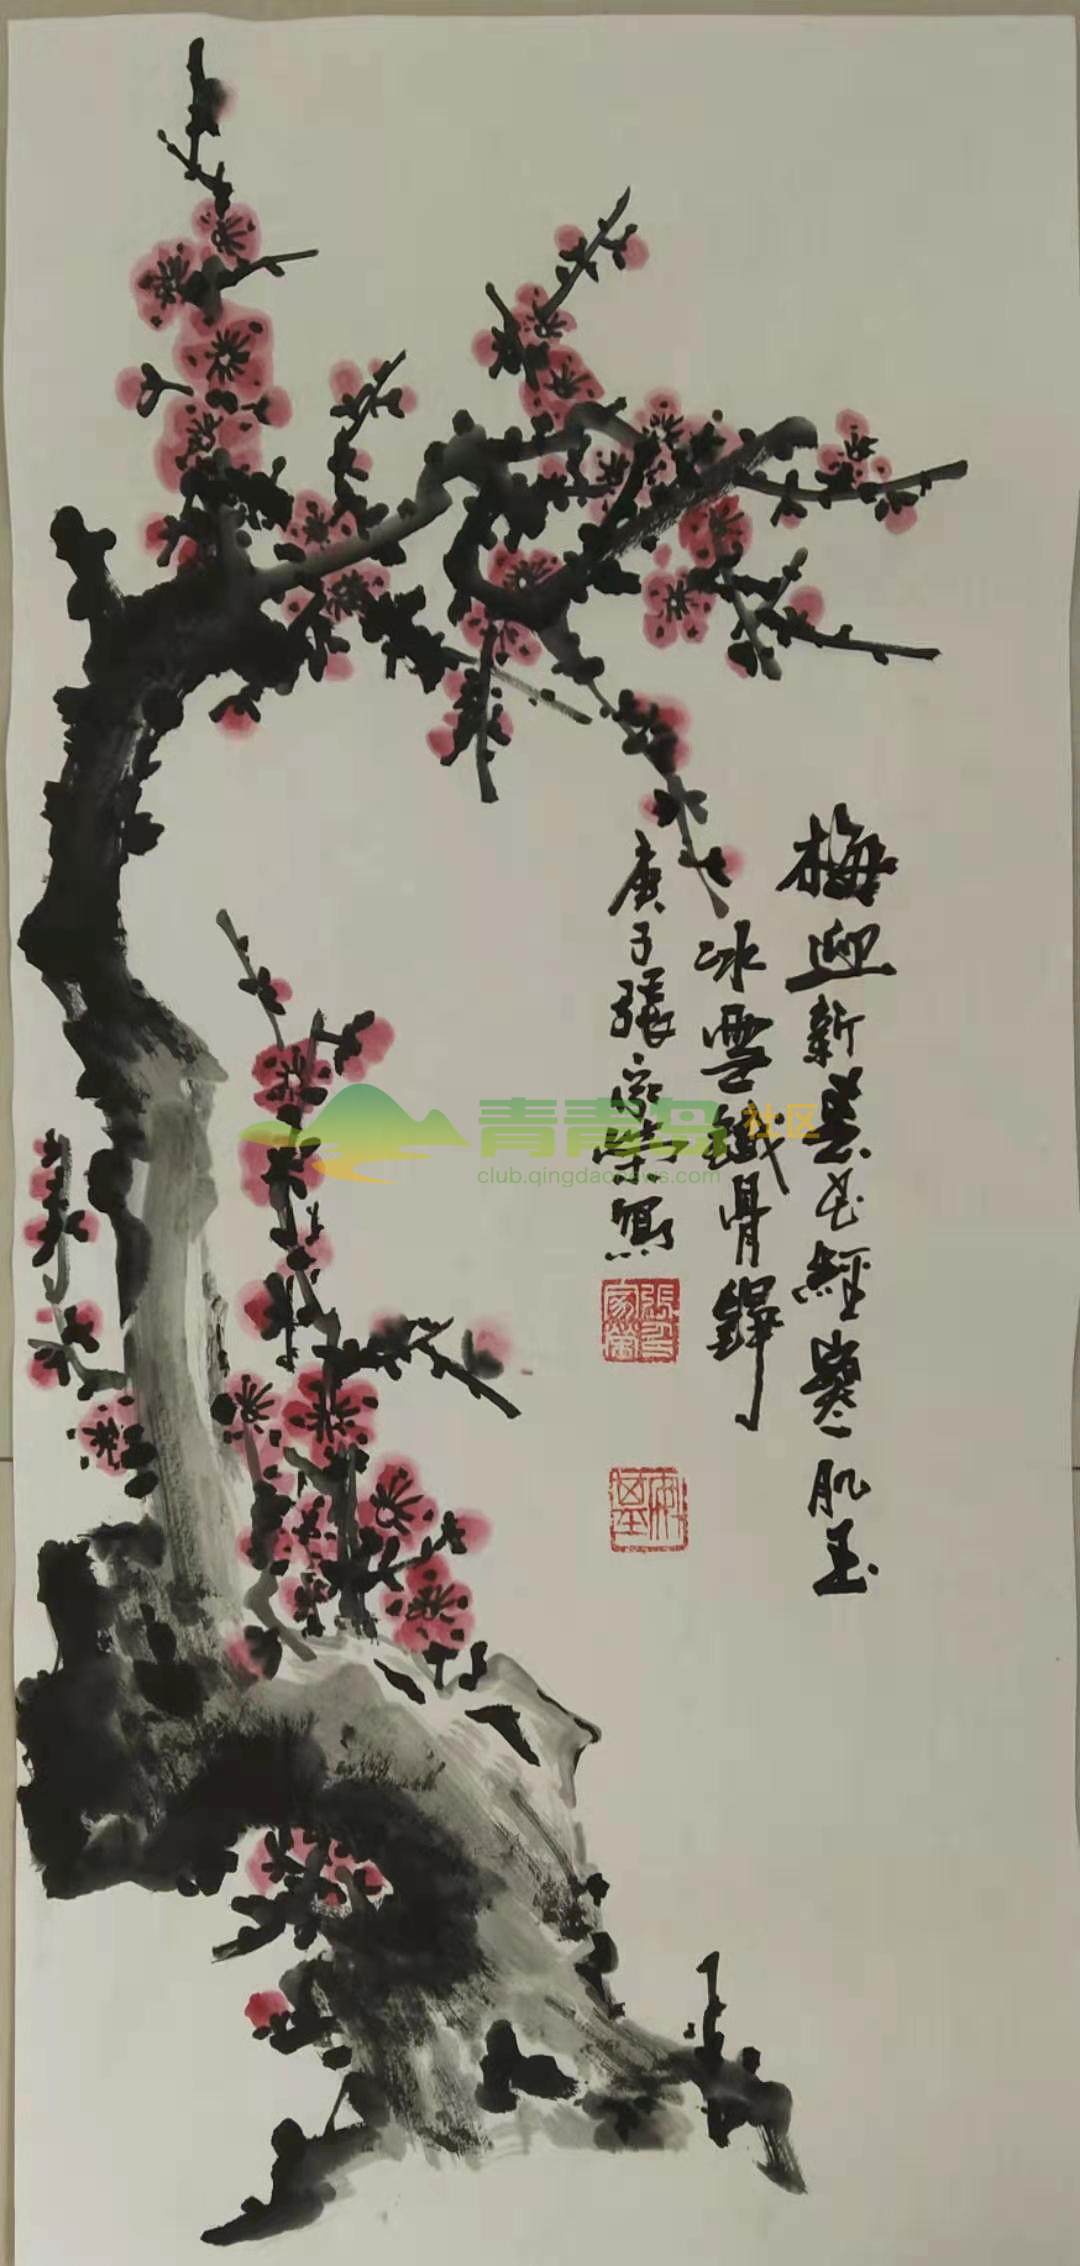 梅迎新春花經寒肌玉
冰雪鐵骨錚
庚子張家榮寫
張家榮
青青岛社区
club.qingdaonews.com